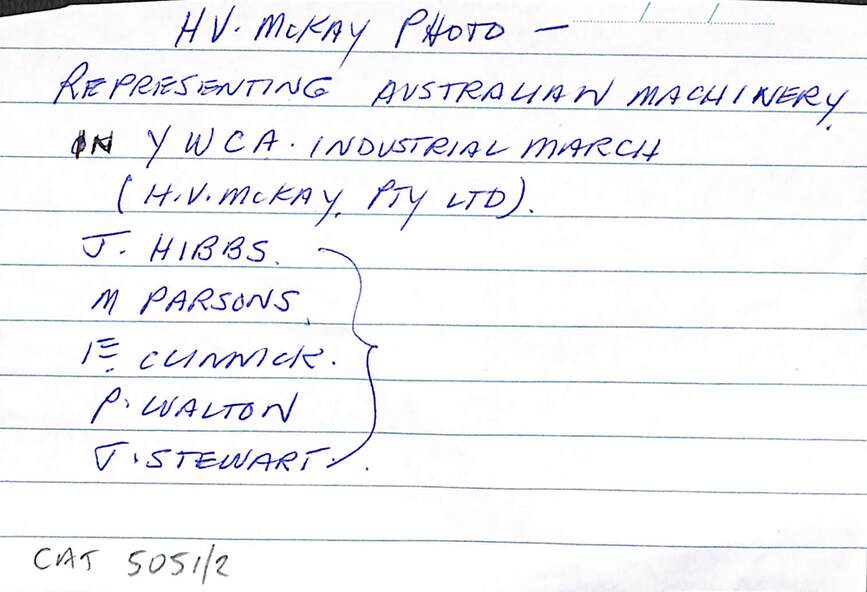 HV. McKAY PHOTO –
REPRESENTING AUSTRALIAN MACHINERY.
IN YWCA. INDUSTRIAL MARCH
(H.V. McKAY. PTY LTD).
J. HIBBS.
M PARSONS.
E. CLINNICK.
P. WALTON
J. STEWART.
CAT 5051/2